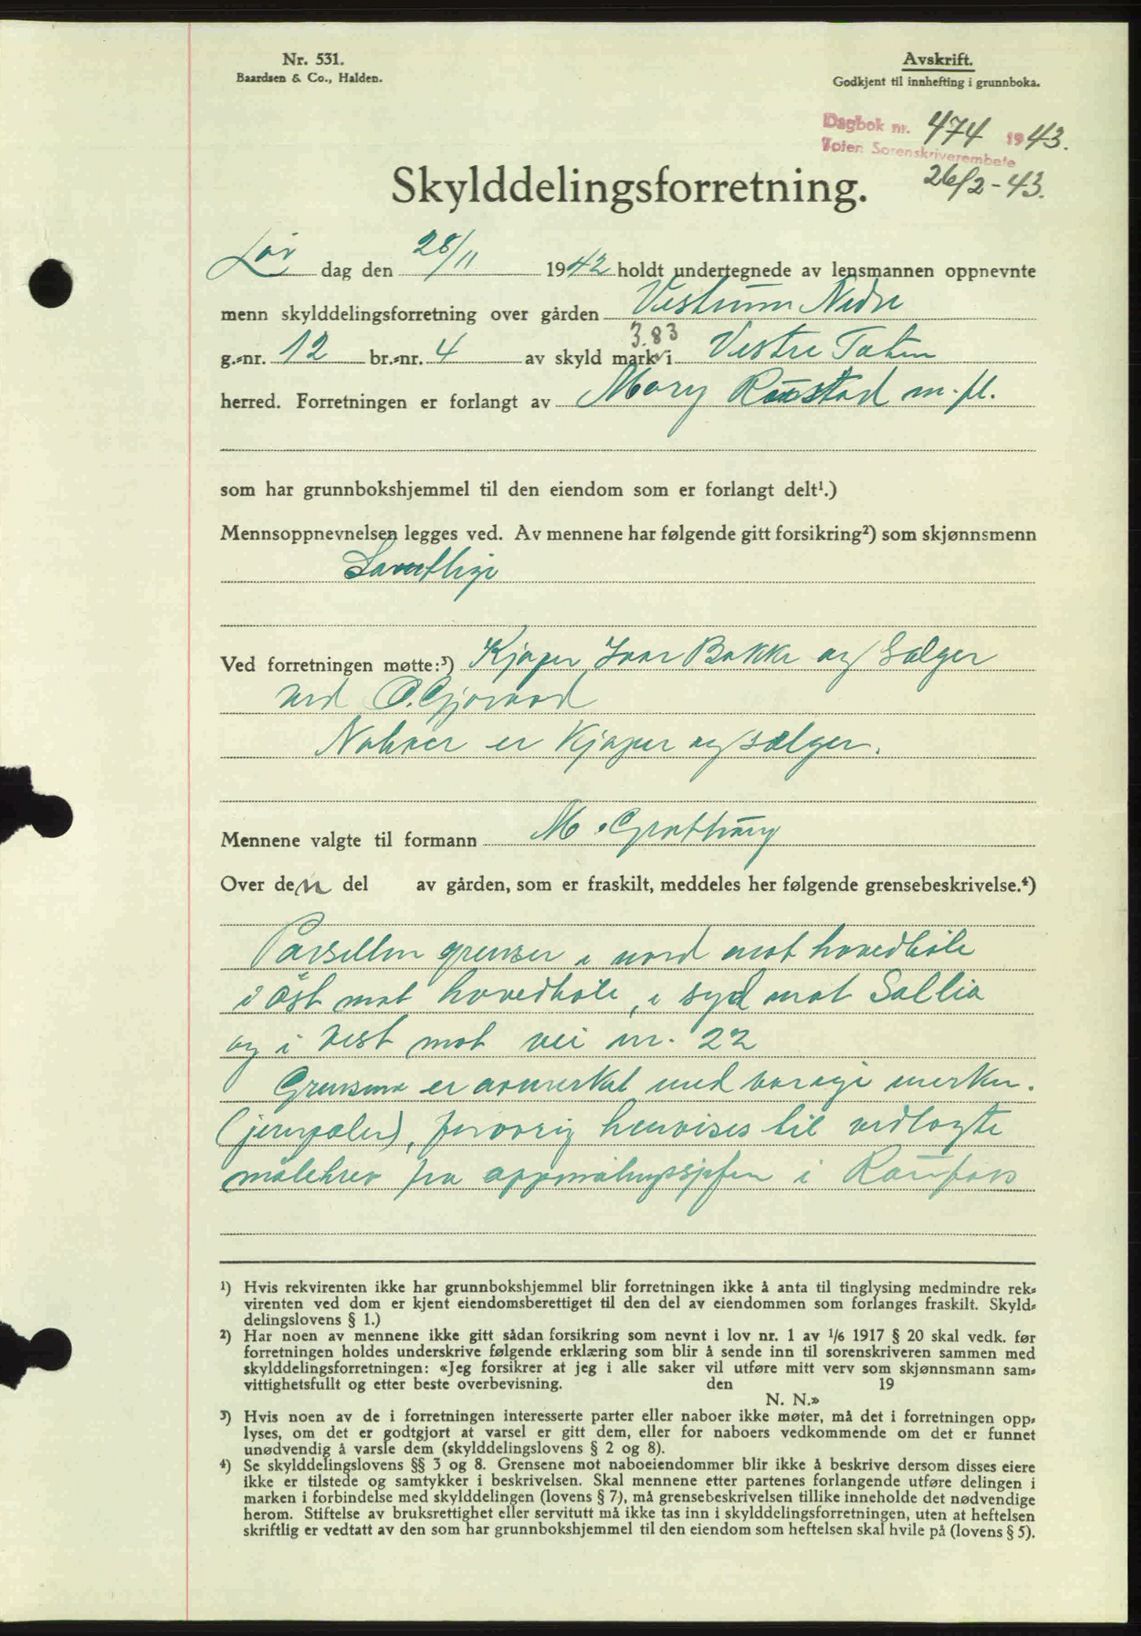 Nr. 531.
Baardsen & Co., Halden.
Avskrift.
Godkjent til innhefting i grunnboka.
Dagbok nr. 474 1943.
Toten Sorenskriverembete
26/2-43.
Skylddelingsforretning.
Lør dag den 28/11 1942 holdt undertegnede av lensmannen oppnevnte
menn skylddelingsforretning over gården Vestrum Nedre
g.-nr. 12 br.-nr. 4 av skyld mark 3.83 i Vestre Toten
herred. Forretningen er forlangt av Mary Raustad m.fl.
som har grunnbokshjemmel til den eiendom som er forlangt delt¹.)
Mennsoppnevnelsen legges ved. Av mennene har følgende gitt forsikring²) som skjønnsmenn
Samtlige
Ved forretningen møtte:³) Kjøper Ivar Bakke og Selger
ved O. Gjørvad
Naboer er Kjøper og sælger.
Mennene valgte til formann M. Grøttung
Over den del av gården, som er fraskilt, meddeles her følgende grensebeskrivelse.⁴)
Parsellen grenser i nord mot hovedbøle
i øst mot hovedbøle, i syd mot Sollia
og i vest mot vei nr. 22
Grensene er avmerket med varige merker.
(jernpæler), forøvrig henvises til vedlagte
målebrev fra oppmålingssjefen i Raufoss
¹) Hvis rekvirenten ikke har grunnbokshjemmel blir forretningen ikke å anta til tinglysing medmindre rek-
virenten ved dom er kjent eiendomsberettiget til den del av eiendommen som forlanges fraskilt. Skyld-
delingslovens § 1.)
²) Har noen av mennene ikke gitt sådan forsikring som nevnt i lov nr. 1 av ¹/6 1917 § 20 skal vedk. før
forretningen holdes underskrive følgende erklæring som blir å sende inn til sorenskriveren sammen med
skylddelingsforretningen: «Jeg forsikrer at jeg i alle saker vil utføre mitt verv som skjønnsmann sam-
vittighetsfullt og etter beste overbevisning. den 19
N. N.»
³) Hvis noen av de i forretningen interesserte parter eller naboer ikke møter, må det i forretningen opp-
lyses, om det er godtgjort at varsel er gitt dem, eller for naboers vedkommende om det er funnet
unødvendig å varsle dem (skylddelingslovens § 2 og 8).
⁴) Se skylddelingslovens §§ 3 og 8. Grensene mot naboeiendommer blir ikke å beskrive dersom disses eiere
ikke er tilstede og samtykker i beskrivelsen. Skal mennene etter partenes forlangende utføre delingen i
marken i forbindelse med skylddelingen (lovens § 7), må grensebeskrivelsen tillike inneholde det nødvendige
herom. Stiftelse av bruksrettighet eller servitutt må ikke tas inn i skylddelingsforretningen, uten at heftelsen
skriftlig er vedtatt av den som har grunnbokshjemmel til den eiendom som heftelsen skal hvile på (lovens § 5).